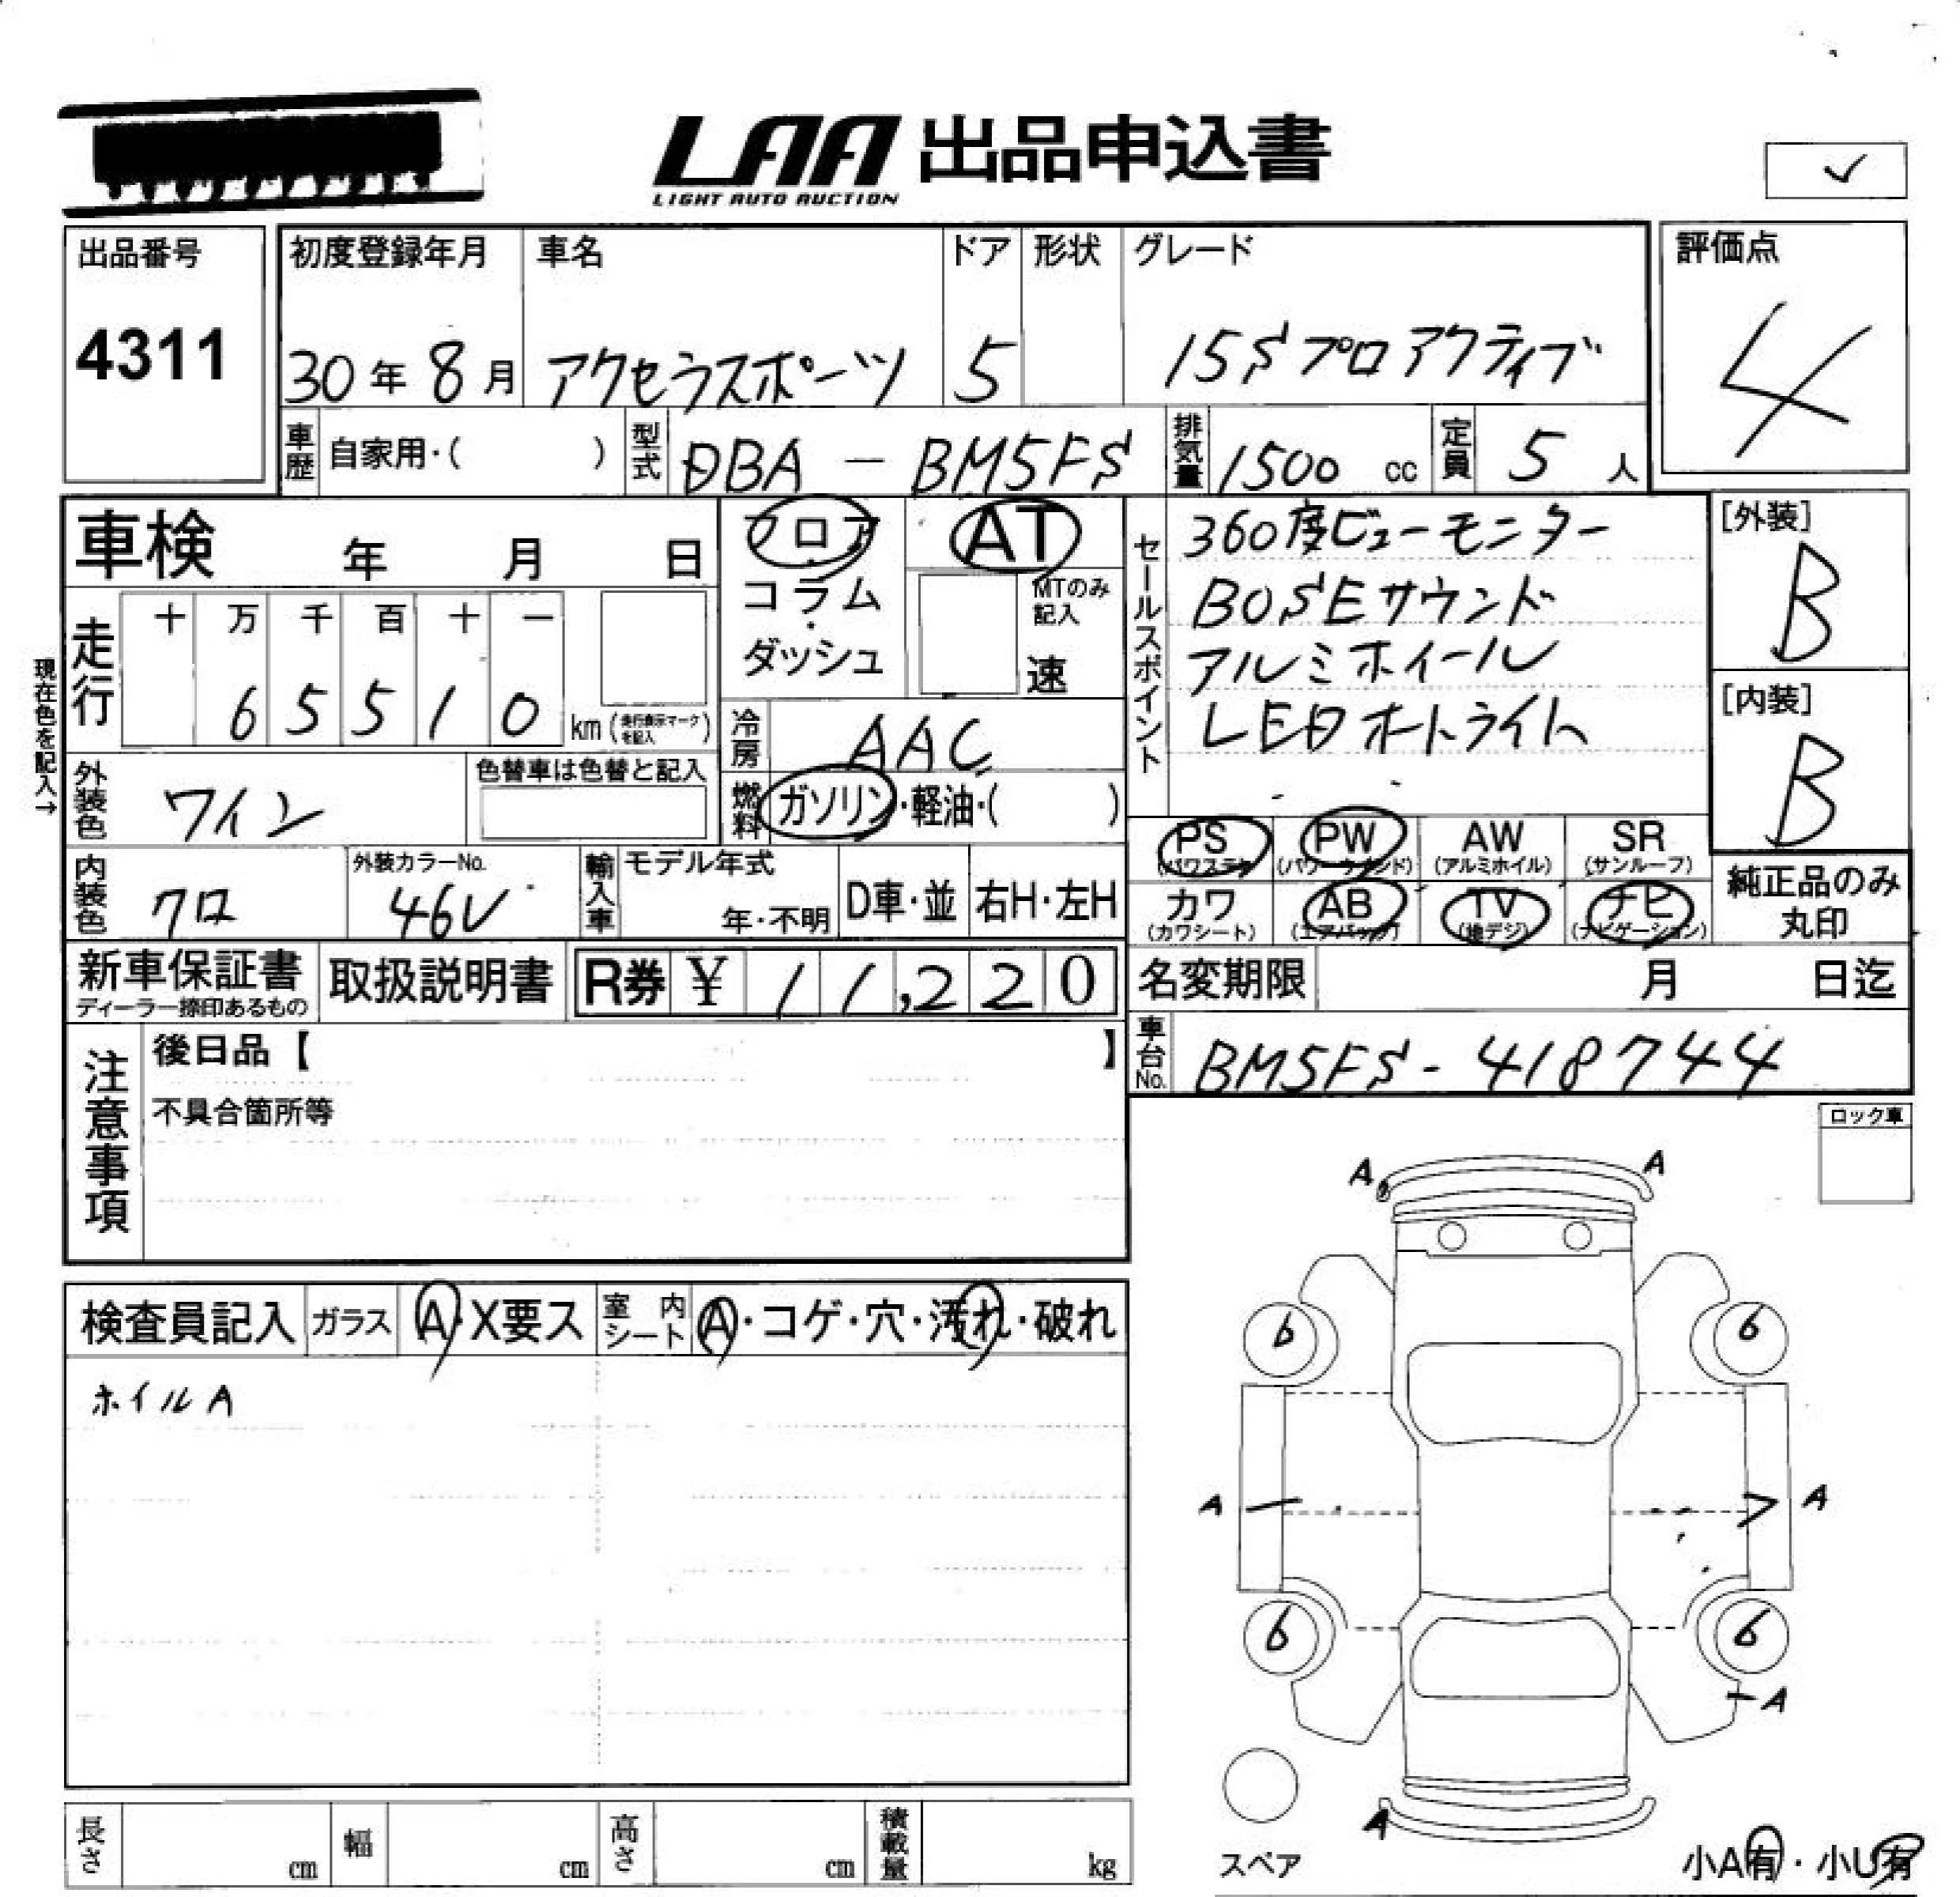 LAA 出品申込書
LIGHT AUTO AUCTION
✓
出品番号
4311
初度登録年月
30年8月
車名
アクセラスポーツ
ドア
5
形状
グレード
15Sプロアクティブ
評価点
4
車歴 自家用・( )
型式 DBA - BM5FS
排気量 1500 cc
定員 5 人
車検 年 月 日
現在色を記入→
走行 十 万 千 百 十 一
65510 km (走行表示マークを記入)
フロア
・
コラム
・
ダッシュ
AT
MTのみ記入
速
冷房 AAC
燃料 ガソリン・軽油・( )
外装色 ワイン
色替車は色替と記入
内装色 クロ
外装カラーNo.
46V
輸入車 モデル年式
年・不明
D車・並
右H・左H
セールスポイント
360度ビューモニター
BOSEサウンド
アルミホイール
LEDオートライト
[外装]
B
[内装]
B
PS (パワステ)
PW (パワーウインド)
AW (アルミホイル)
SR (サンルーフ)
カワ (カワシート)
AB (エアバック)
TV (地デジ)
ナビ (ナビゲーション)
純正品のみ
丸印
新車保証書
ディーラー捺印あるもの
取扱説明書
R券 ¥ 11,220
名変期限 月 日迄
車台No. BM5FS-418744
注意事項
後日品【 】
不具合箇所等
ロック車
検査員記入 ガラス A・X要ス 室内シート A・コゲ・穴・汚れ・破れ
ホイルA
A A
6 6
A A
6 6
A
A
スペア
小A有・小U有
長さ cm
幅 cm
高さ cm
積載量 kg